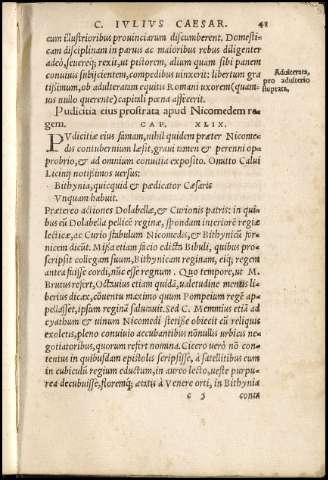 C. IVLIVS CAESAR. 41
cum illustrioribus prouinciarum discumberent. Domesti-
cam disciplinam in paruis ac maioribus rebus diligenter
adeò, seuereq; rexit, ut pistorem, alium quam sibi panem
conuiuis subijcientem, compedibus uinxerit: libertum gra
tissimum, ob adulteratam equitis Romani uxorem (quam-
uis nullo querente) capitali pœna affecerit.
Adulterata,
pro adulterio
stuprata.
Pudicitia eius prostrata apud Nicomedem re-
gem. CAP. XLIX.
PVdicitiæ eius famam, nihil quidem præter Nicome-
dis contubernium læsit, graui tamen & perenni op-
probrio, & ad omnium conuitia exposito. Omitto Calui
Licinij notissimos uersus:
Bithynia, quicquid & pædicator Cæsaris
Vnquam habuit.
Prætereo actiones Dolabellæ, & Curionis patris: in qui-
bus eū Dolabella pellicē reginæ, spondam interiorē regiæ
lecticæ, ac Curio stabulum Nicomedis, & Bithynicū for-
nicem dicūt. Missa etiam facio edicta Bibuli, quibus pro-
scripsit collegam suum, Bithynicam reginam, eiq; regem
antea fuisse cordi, nūc esse regnum. Quo tempore, ut M.
Brutus refert, Octauius etiam quidā, ualetudine mentis li-
berius dicax, cōuentu maximo quum Pompeium regē ap-
pellasset, ipsum reginā salutauit. Sed C. Memmius etiā ad
cyathum & uinum Nicomedi stetisse obiecit cū reliquis
exoletis, pleno conuiuio accubantibus nōnullis urbicis ne-
gotiatoribus, quorum refert nomina. Cicero uerò nō con-
tentus in quibusdam epistolis scripsisse, à satellitibus eum
in cubiculū regium eductum, in aureo lecto, ueste purpu-
rea decubuisse, floremq; ætatis à Venere orti, in Bithynia
c 5 conta